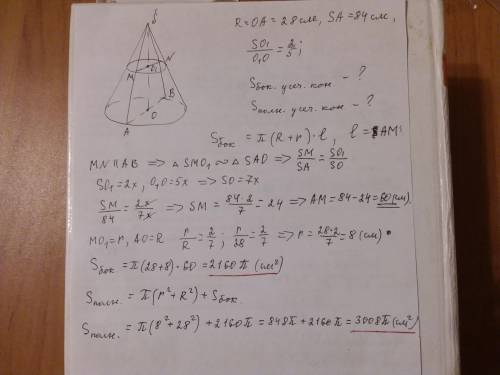 R = OA = 28 см, SA = 84 см,
SO₁/O₁O = 2/5;
Sбок. усеч. кон - ?
Sполн. усеч. кон - ?
S
M O₁ N
B
A O
Sбок = π(R+r)·l, l = AM
MN ∥ AB => △SMO₁ ∾ △SAO => SM/SA = SO₁/SO
SO₁ = 2x, O₁O = 5x => SO = 7x
SM/84 = 2x/7x => SM = 84·2/7 = 24 => AM = 84-24 = 60 (см).
MO₁ = r, AO = R r/R = 2/7; r/28 = 2/7 => r = 28·2/7 = 8 (см)
Sбок = π(28+8)·60 = 2160π (см²)
Sполн. = π(r²+R²) + Sбок.
Sполн. = π(8²+28²) + 2160π = 848π + 2160π = 3008π (см²)